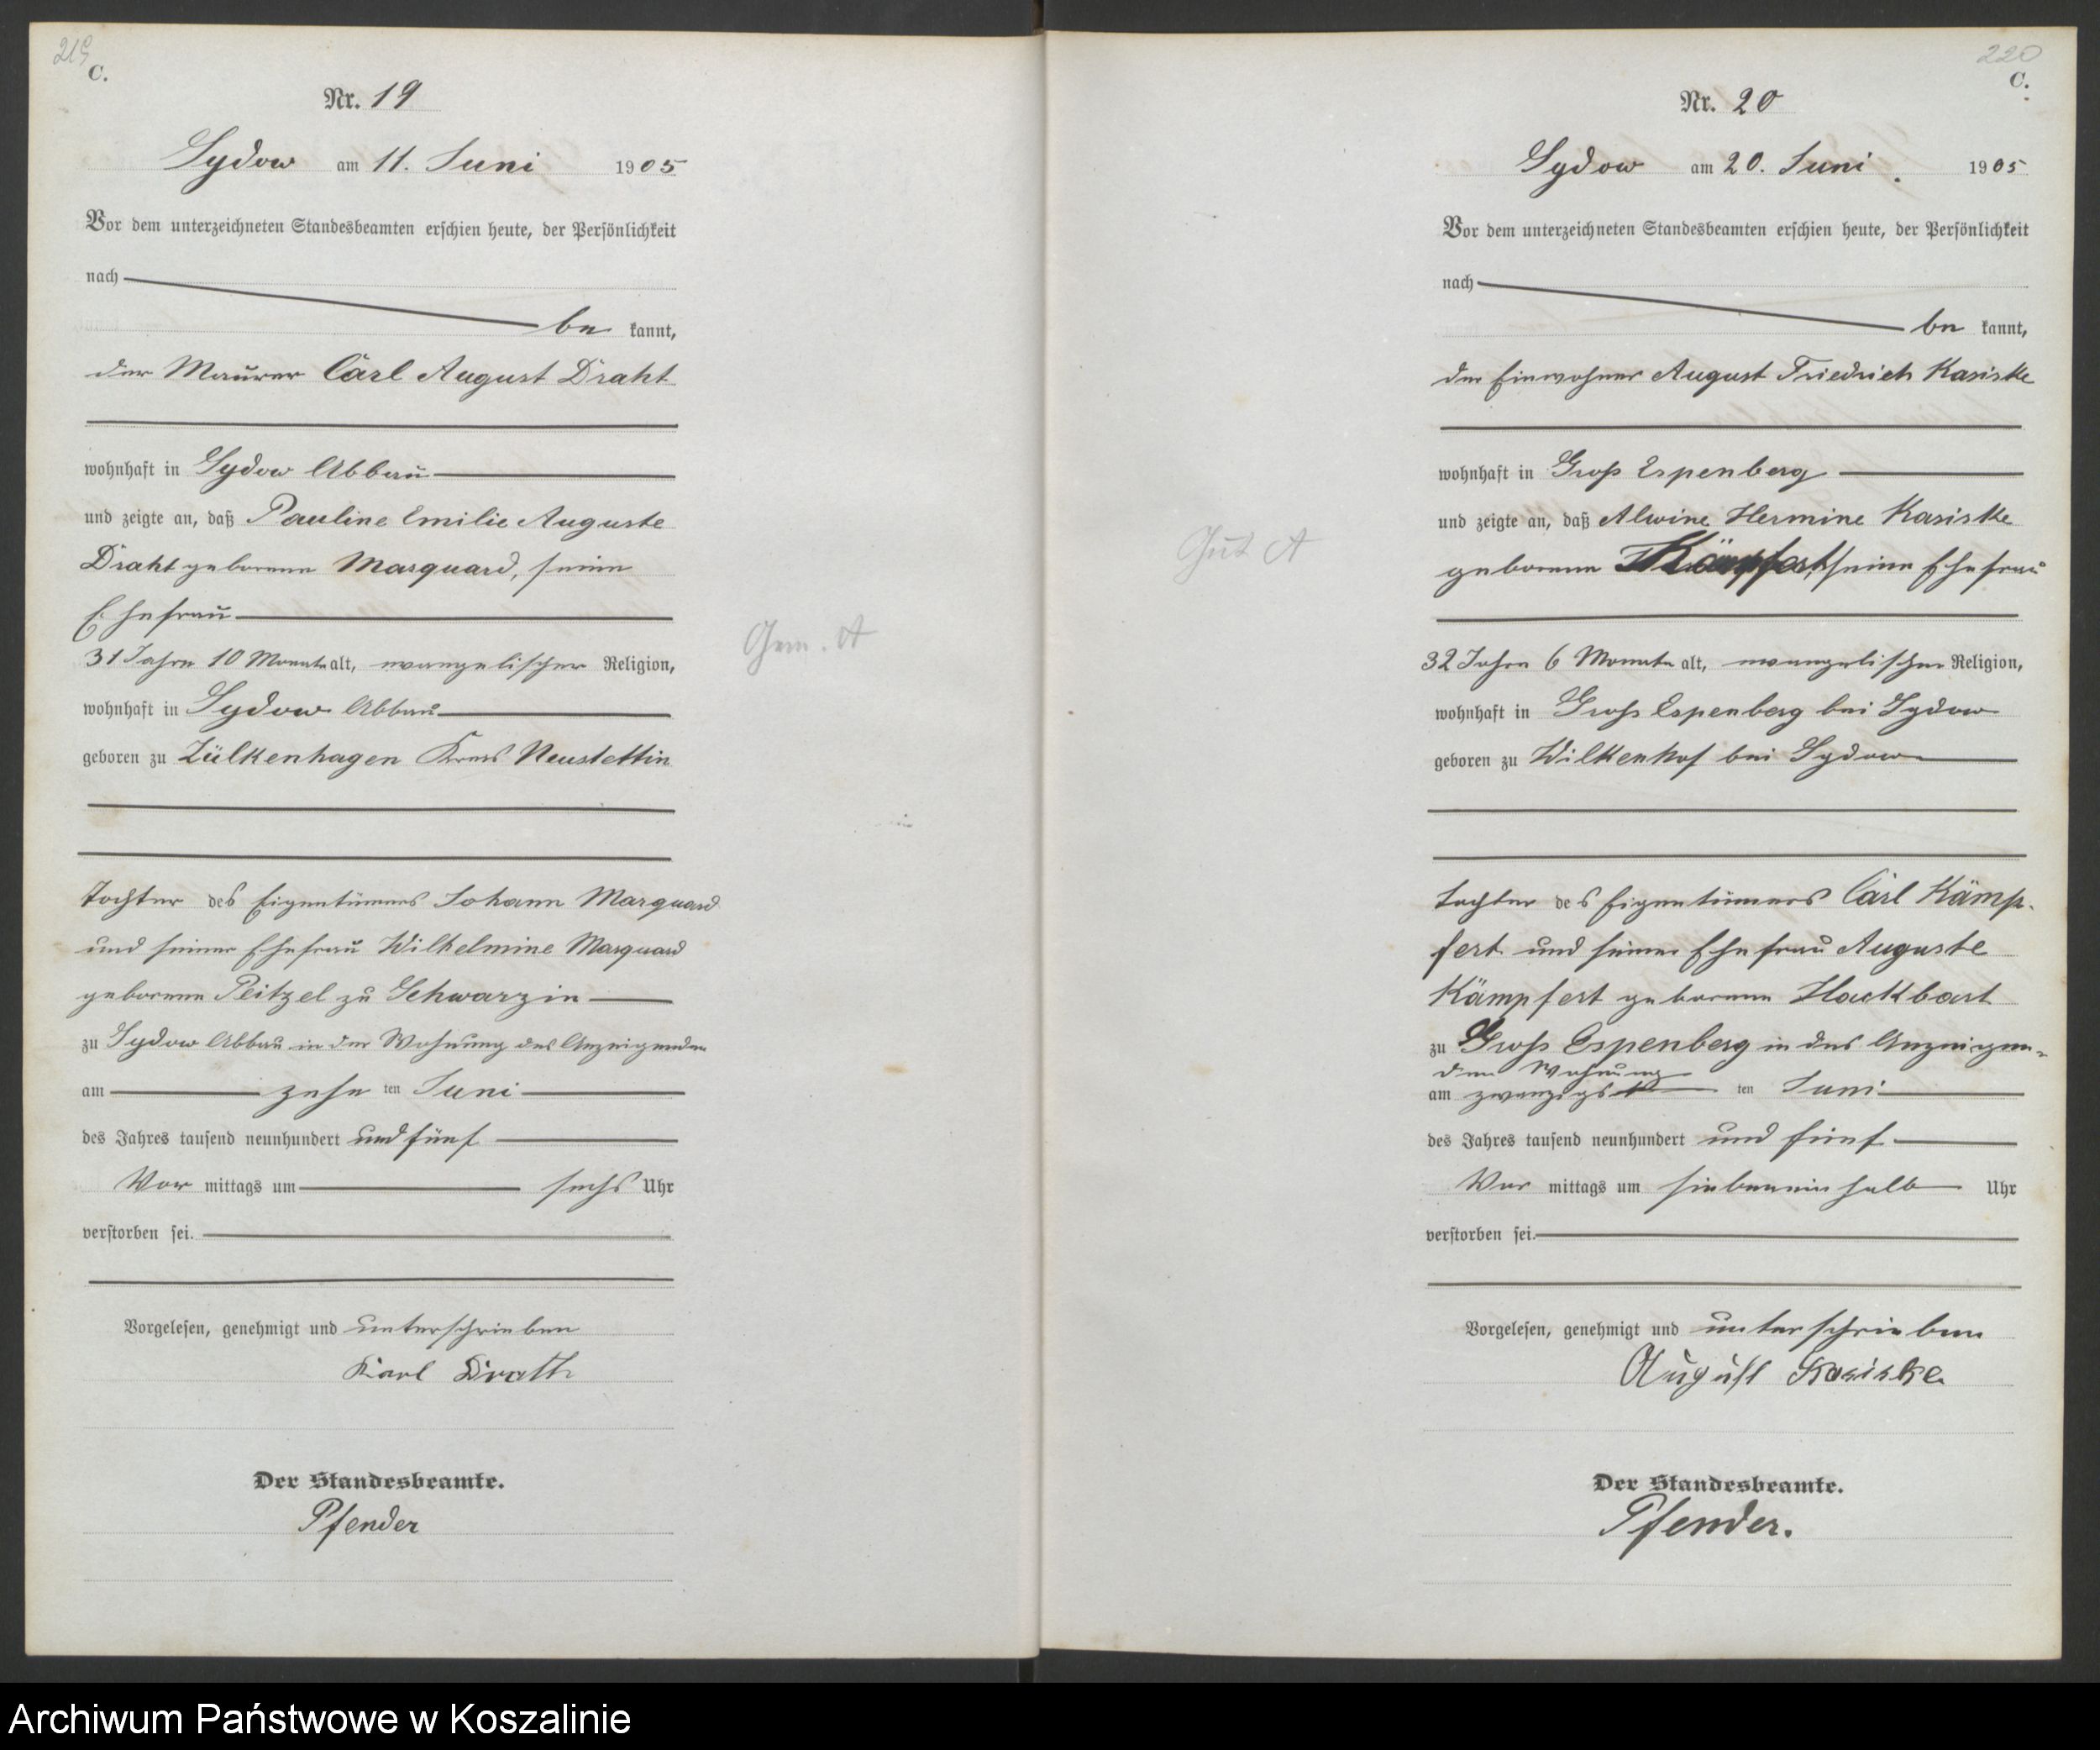 219
C.
Nr. 19
Sydow am 11. Juni 1905
Vor dem unterzeichneten Standesbeamten erschien heute, der Persönlichkeit
nach
be kannt,
der Maurer Carl August Draht
wohnhaft in Sydow Abbau
und zeigte an, daß Pauline Emilie Auguste
Draht geborene Marquard, seine
Ehefrau
31 Jahre 10 Monate alt, evangelischer Religion,
wohnhaft in Sydow Abbau
geboren zu Zülkenhagen Kreis Neustettin
Tochter des Eigentümers Johann Marquard
und seiner Ehefrau Wilhelmine Marquard
geborene Peitzel zu Schwarzin
zu Sydow Abbau in der Wohnung des Anzeigenden
am zehn ten Juni
des Jahres tausend neunhundert und fünf
Vor mittags um sechs Uhr
verstorben sei.
Vorgelesen, genehmigt und unterschrieben
Karl Drath
Der Standesbeamte.
Pfender
Gem. A
220
C.
Nr. 20
Sydow am 20. Juni 1905
Vor dem unterzeichneten Standesbeamten erschien heute, der Persönlichkeit
nach
be kannt,
der Einwohner August Friedrich Kasiske
wohnhaft in Groß Espenberg
und zeigte an, daß Alwine Hermine Kasiske
geborene Kämpfert, seine Ehefrau
32 Jahre 6 Monate alt, evangelischer Religion,
wohnhaft in Groß Espenberg bei Sydow
geboren zu Wilkenhof bei Sydow
Tochter des Eigentümers Carl Kämp-
fert und seiner Ehefrau Auguste
Kämpfert geborene Hackbart
zu Groß Espenberg in des Anzeigen-
den Wohnung
am zwanzigs ten Juni
des Jahres tausend neunhundert und fünf
Vor mittags um siebeneinhalb Uhr
verstorben sei.
Vorgelesen, genehmigt und unterschrieben
August Kasiske
Der Standesbeamte.
Pfender.
Gut A
Archiwum Państwowe w Koszalinie